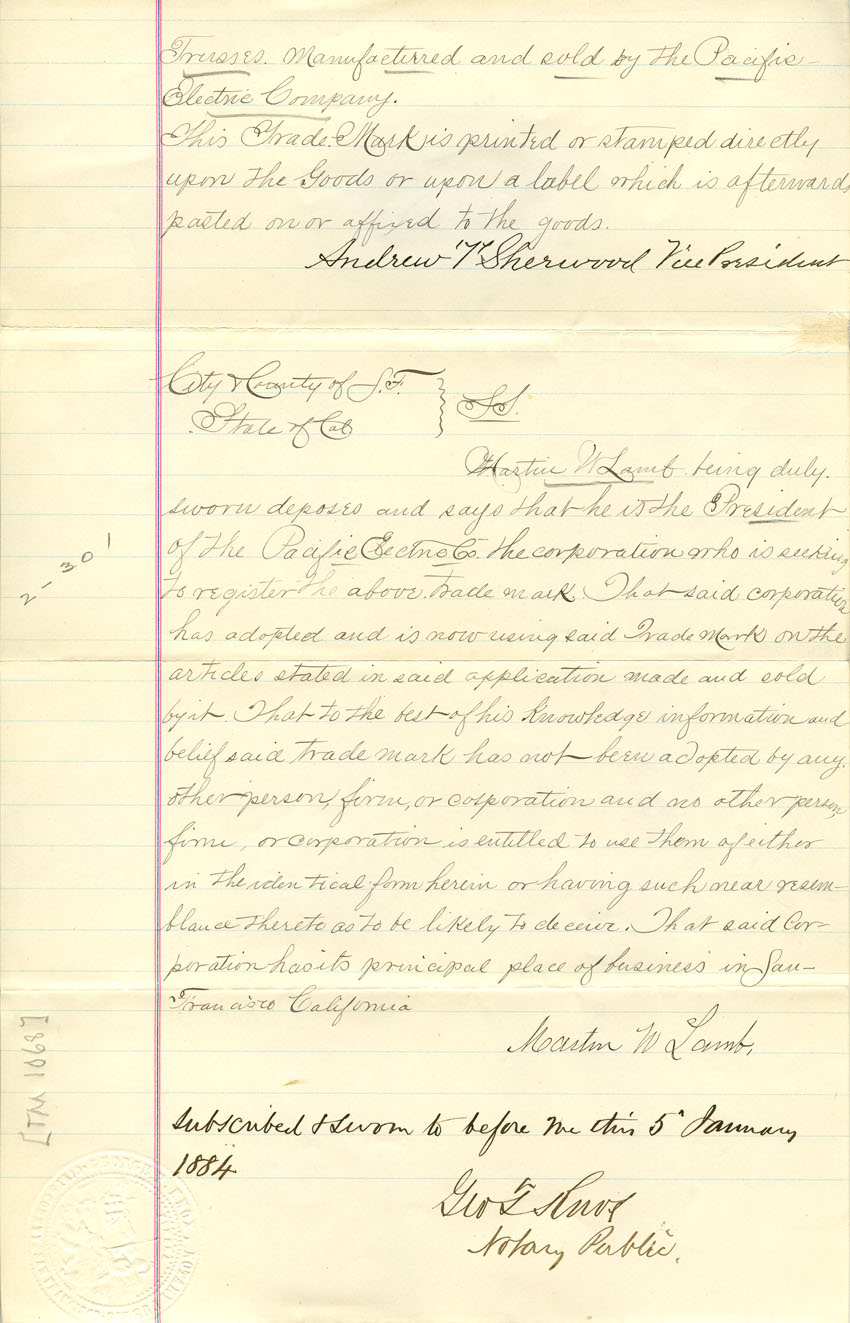 Trusses. Manufactured and sold by the Pacific
Electric Company.
This Trade Mark is printed or stamped directly
upon the Goods or upon a label which is afterwards
pasted on or affixed to the goods.
Andrew T Sherwood Vice President
City & County of S.F.
State of Cal
SS.
Martin W Lamb being duly.
sworn deposes and says that he is the President
of the Pacific Electric Co. the corporation who is seeking
to register the above trade mark That said corporation
has adopted and is now using said Trade Mark on the
articles stated in said application made and sold
by it That to the best of his Knowledge information and
belief said trade mark has not been adopted by any
other person, firm, or corporation and no other person
firm, or corporation is entitled to use them or either
in the identical form herein or having such near resem-
blance thereto as to be likely to deceive. That said Cor-
poration has its principal place of business in San-
Francisco California
Martin W Lamb.
subscribed & sworn to before me this 5" January
1884
Geo T Knox
Notary Public.
2-30!
[TM 1068]